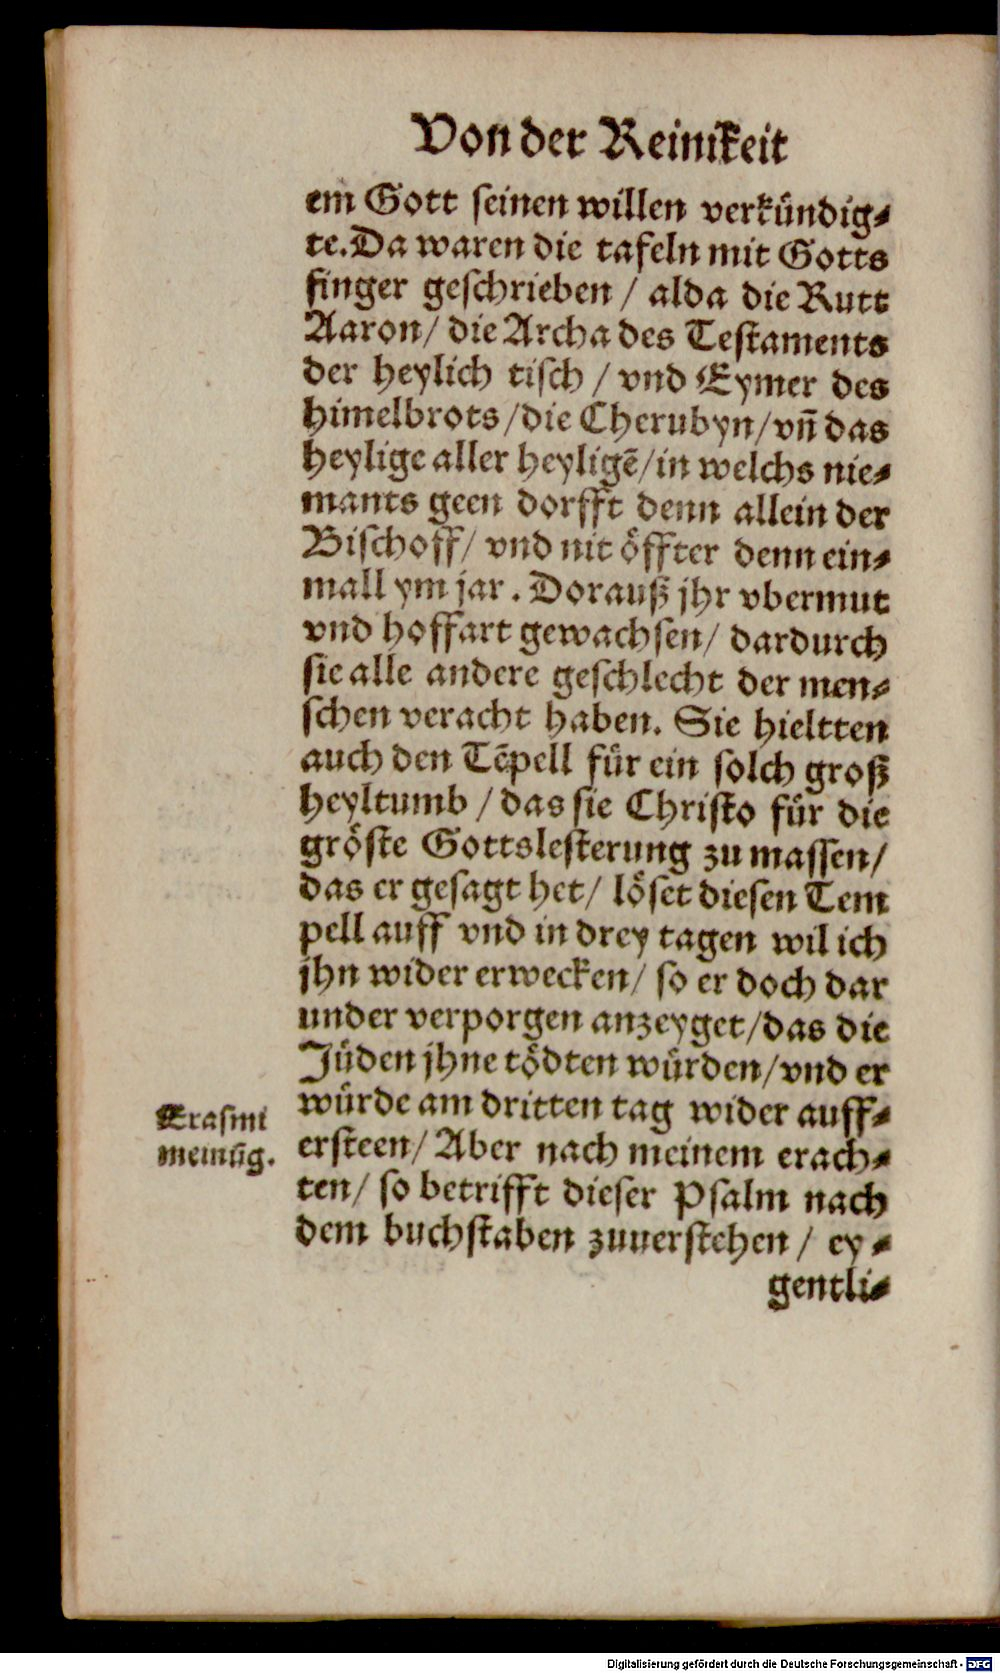 Von der Reinikeit
em Gott seinen willen verkündig⸗
te. Da waren die tafeln mit Gotts
finger geschrieben / alda die Rutt
Aaron / die Archa des Testaments
der heylich tisch / vnd Eymer des
himelbrots / die Cherubyn / vn̄ das
heylige aller heyligē / in welchs nie⸗
mants geen dorfft denn allein der
Bischoff / vnd nit öffter denn ein⸗
mall ym jar. Dorauß jhr vbermut
vnd hoffart gewachsen / dardurch
sie alle andere geschlecht der men⸗
schen veracht haben. Sie hieltten
auch den Tēpell für ein solch groß
heyltumb / das sie Christo für die
gröste Gottslesterung zu massen /
das er gesagt het / löset diesen Tem
pell auff vnd in drey tagen wil ich
jhn wider erwecken / so er doch dar
under verporgen anzeyget / das die
Jüden jhne tödten würden / vnd er
würde am dritten tag wider auff⸗
ersteen / Aber nach meinem erach⸗
ten / so betrifft dieser Psalm nach
dem buchstaben zuuerstehen / ey⸗
gentli⸗
Erasmi
meinūg.
Digitalisierung gefördert durch die Deutsche Forschungsgemeinschaft - DFG